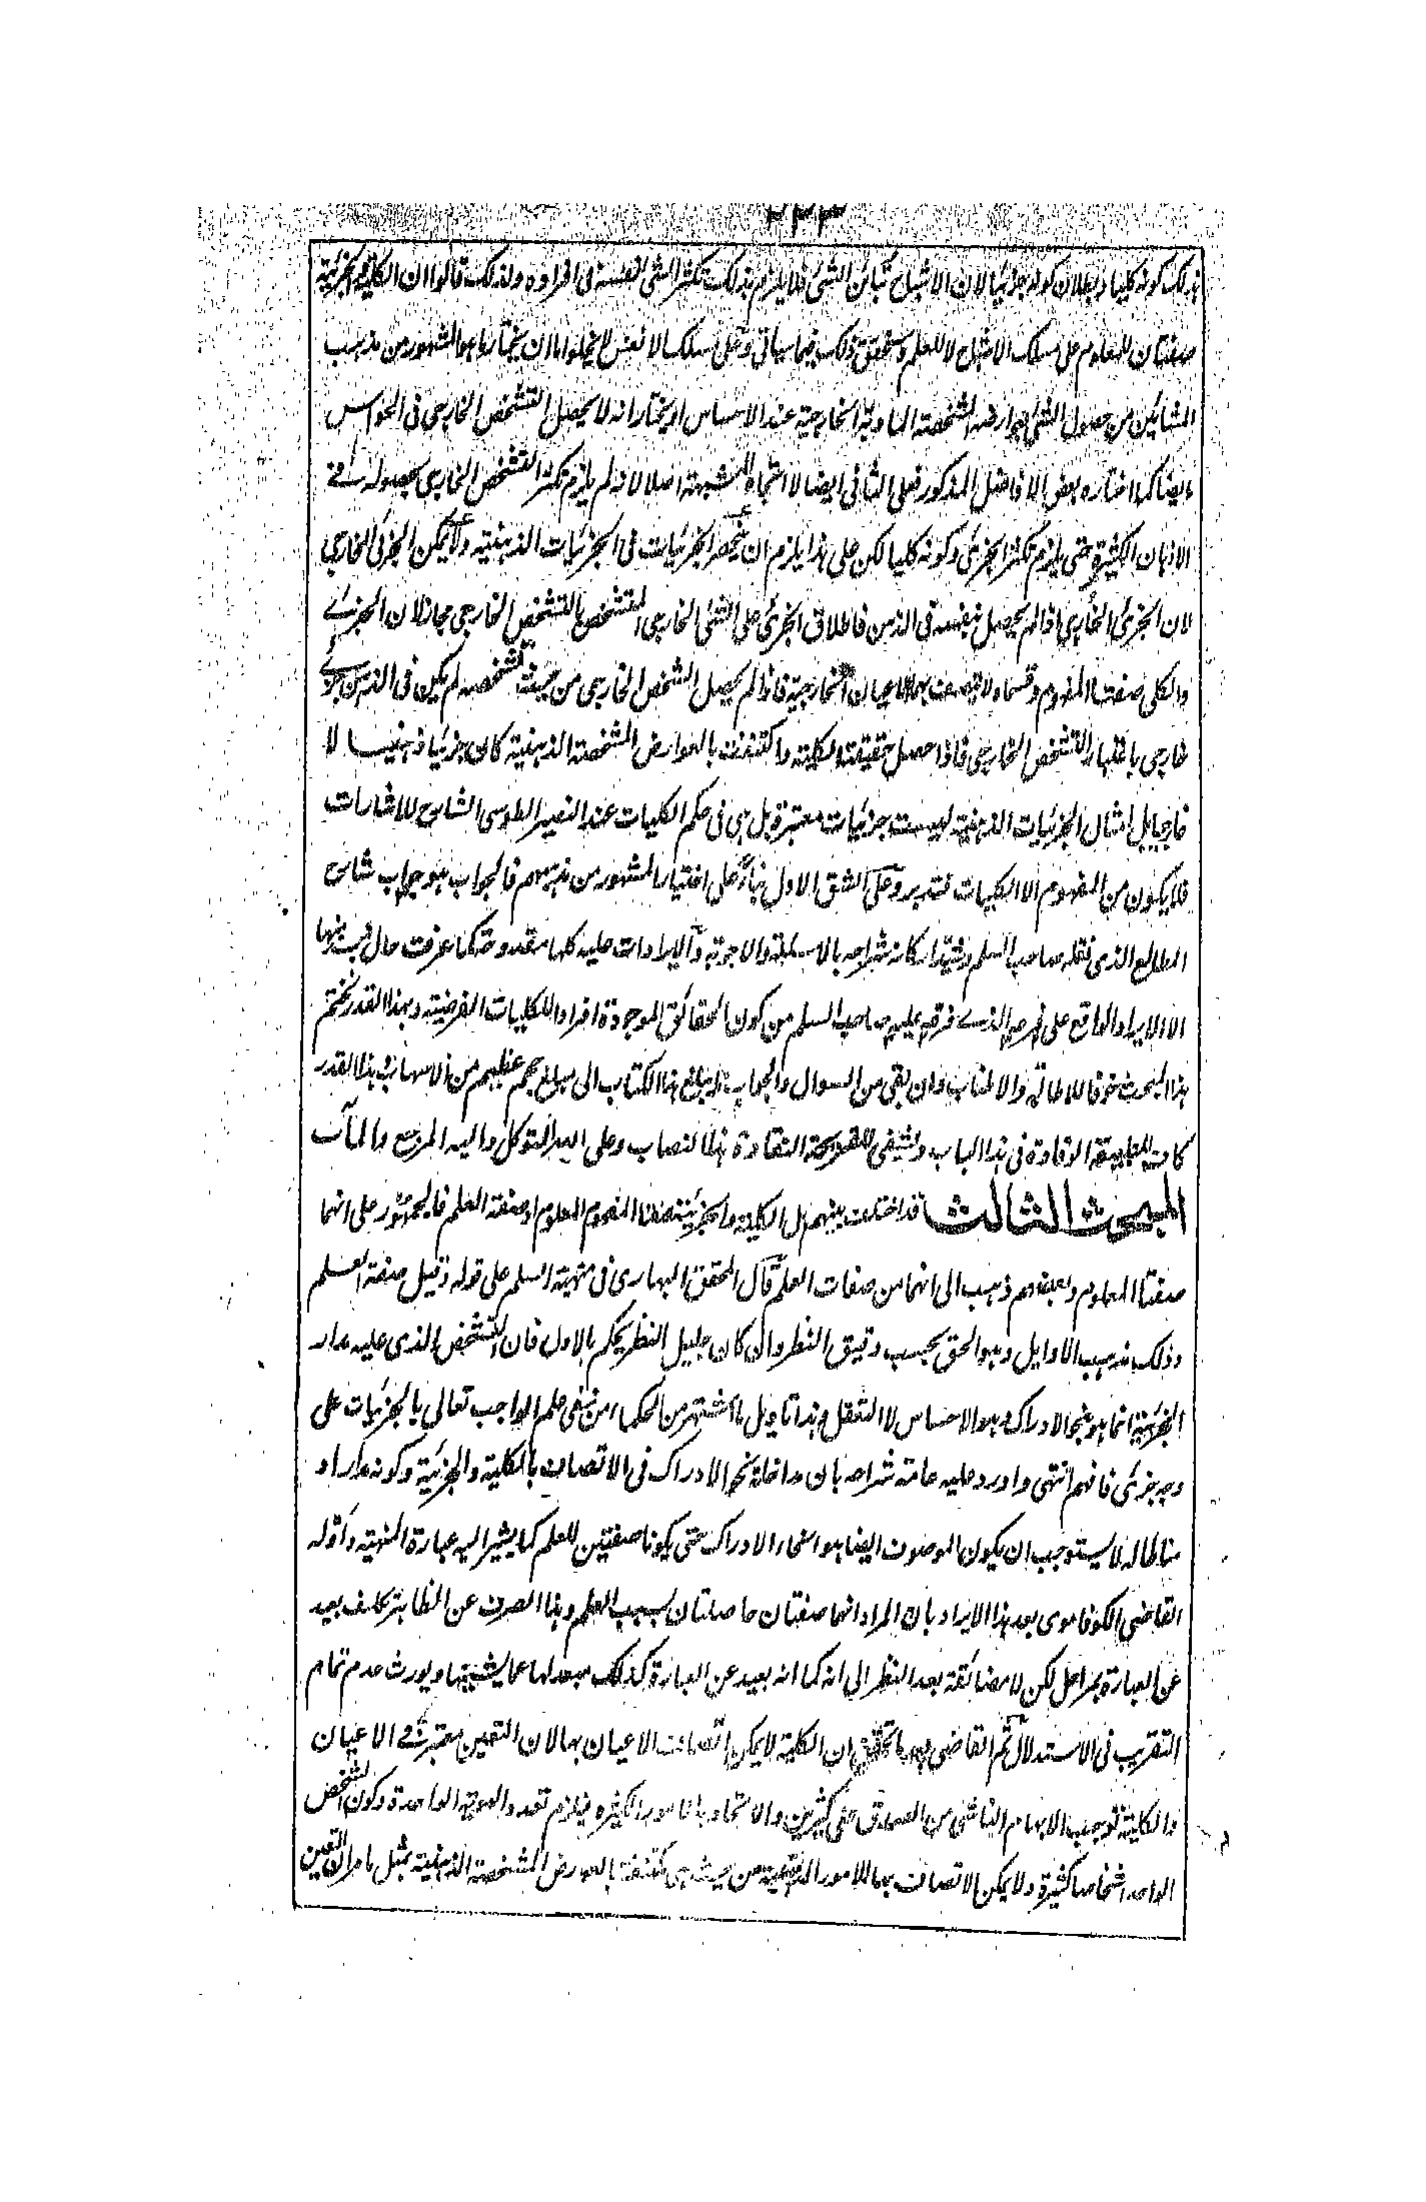 ٢٤٣
بذلك كونه كليا وبطلان كونه جزئيا لان الاشباح تباين الشئ فلا يلزم بذلك تكثر الشئ بنفسه فى افراده ولذلك قالوا ان الكلية والجزئية
صفتان للمعلوم على مسلك الاشباح لا للعلم وستحقق ذلك فيما سياتى وعلى مسلك الانفس لا يخلو اما ان يختار ما هو المشهور من مذهب
المشائين من حصول الشئ بعوارضه المشخصة المادية الخارجية عند الاحساس او يختار انه لا يحصل التشخص الخارجى فى الحواس
ايضا كما اختاره بعض الافاضل المذكور فعلى الثانى ايضا لا اتجاه للشبهة اصلا لانه لم يلزم تكثر التشخص الخارجى بحصوله فى
الاذهان الكثيرة حتى يلزم تكثر الجزئى وكونه كليا لكن على هذا يلزم ان ينحصر الجزئيات فى الجزئيات الذهنية ولا يمكن الجزئى الخارجى
لان الجزئى الخارجى اذا لم يحصل بنفسه فى الذهن فاطلاق الجزئى على الشئ الخارجى المتشخص بالتشخص الخارجى مجاز لان الجزئى
والكلى صفتا المفهوم وقسماه ولا يتصف بهما الاعيان الخارجية فاذا لم يحصل الشخص الخارجى من حيث تشخصه لم يكن فى الذهن جزئى
خارجى باعتبار التشخص الخارجى فاذا حصل حقيقته الكلية واكتنفت بالعوارض المشخصة الذهنية كان جزئيا ذهنيا لا
خارجيا بل امثال الجزئيات الذهنية ليست جزئيات معتبرة بل هى فى حكم الكليات عند النصير الطوسى الشارح للاشارات
فلا يكون من المفهوم الا الكليات تدبر وعلى الشق الاول بناء على اختيار المشهور من مذهبهم فالجواب هو جواب شارح
المطالع الذى نقله صاحب السلم وشيد اركانه شراحه بالاسئلة والاجوبة والايرادات عليه كلها مقدوحة كما عرفت حال قرب منها
الا الايراد الواقع على فرعه الذى فرعه عليه صاحب السلم من كون الحقائق الموجودة افرادا للكليات الفرضية وبهذا القدر نختم
هذا المبحث خوفا للاطالة والاطناب وان بقى من السوال والجواب ما يبلغ هذا الكتاب الى مبلغ جم عظيم من الاسهاب وهذا القدر
كاف للطبيعة الوقادة فى هذا الباب ولشفى للقريحة النقادة هذا النصاب وعلى الله التوكل واليه المرجع والمآب
المبحث الثالث قد اختلف بينهم هل الكلية والجزئية صفتا المفهوم المعلوم او صفة العلم فالجمهور على انهما
صفتا المعلوم وبعضهم ذهب الى انهما من صفات العلم قال المحقق البهارى فى منهية السلم على قوله وقيل صفة العلم
وذلك مذهب الاوايل وهو الحق بحسب دقيق النظر وان كان جليل النظر يحكم بالاول فان التشخص الذى عليه مدار
الجزئية انما هو بنحو الادراك وهو الاحساس لا التعقل وهذا تاويل ما اشتهر من الحكماء من نفى علم الواجب تعالى بالجزئيات على
وجه جزئى فافهم انتهى واورد عليه عامة شراحه بان مداخلة نحو الادراك فى الاتصاف بالكلية والجزئية وكونه مدارا و
مناطا له لا يستوجب ان يكون الموصوف ايضا هو انحاء الادراك حتى يكونا صفتين للعلم كما يشير اليه عبارة المنهية واوله
القاضى الكوفاموى بعد هذا الايراد بان المراد انهما صفتان حاصلتان بسبب العلم وهذا الصرف عن الظاهر تكلف بعيد
عن العبارة بمراحل لكن لا مضائقة بعد النظر الى انه كما انه بعيد عن العبارة كذلك مبعد لها عما يشينها ويورث عدم تمام
التقريب فى الاستدلال ثم القاضى بعد ما تحقق ان الكلية لا يمكن اتصاف الاعيان بها لان التعين معتبر فى الاعيان
والكلية توجب الابهام الناشى من الصدق على كثيرين والاتحاد بالامور الكثيرة فيلزم تعدد الهوية الواحدة وكون الشخص
الواحد اشخاصا كثيرة ولا يمكن الاتصاف بها للامور الذهنية من حيث هى مكتنفة بالعوارض المشخصة الذهنية بمثل ما مر ان التعين